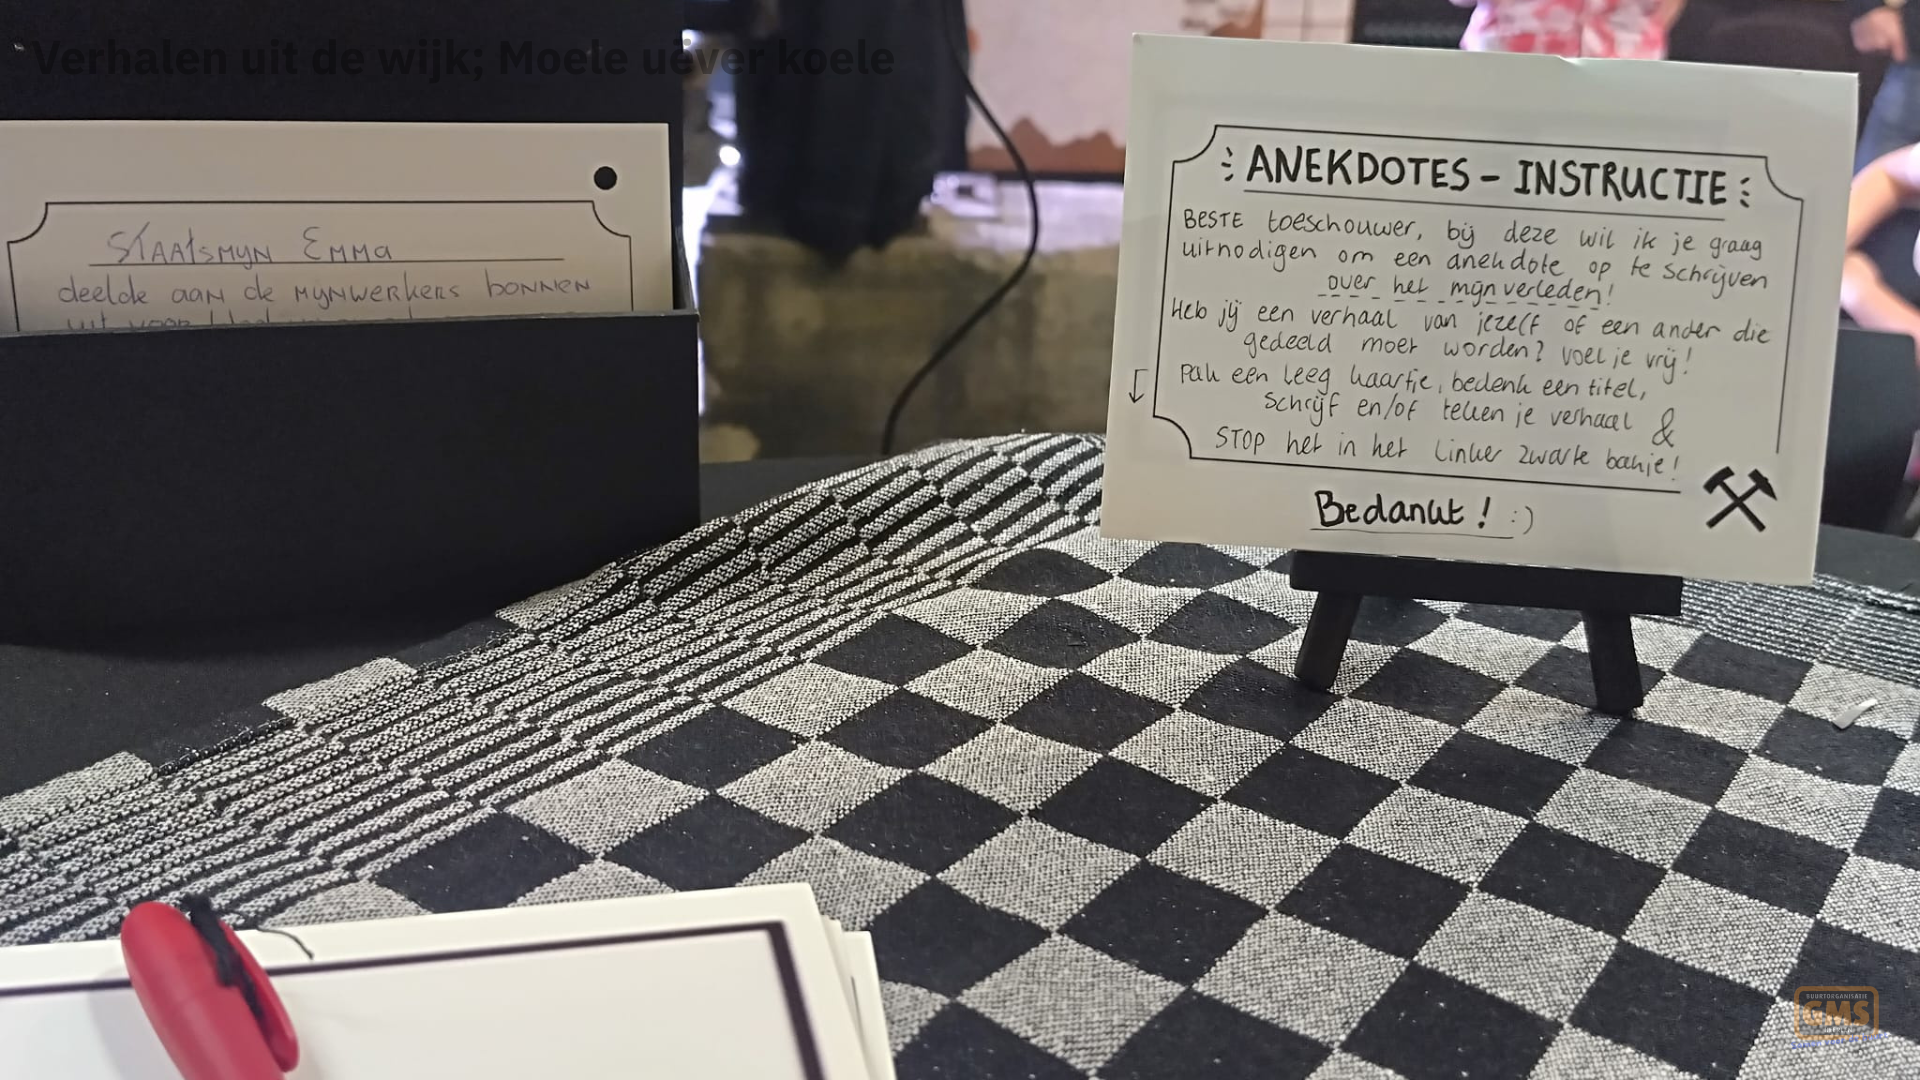 Verhalen uit de wijk; Moele uëver koele
STAATSMYN EMMA
deelde aan de MYNWERKERS bonnen
uit voor
ANEKDOTES - INSTRUCTIE
BESTE toeschouwer, bij deze wil ik je graag
uitnodigen om een anekdote op te schrijven
over het mijnverleden!
Heb jij een verhaal van jezelf of een ander die
gedeeld moet worden? voel je vrij!
Pak een leeg kaartje, bedenk een titel,
schrijf en/of teken je verhaal &
STOP het in het linker zwarte bakje!
Bedankt! :)
BUURTORGANISATIE
GMS